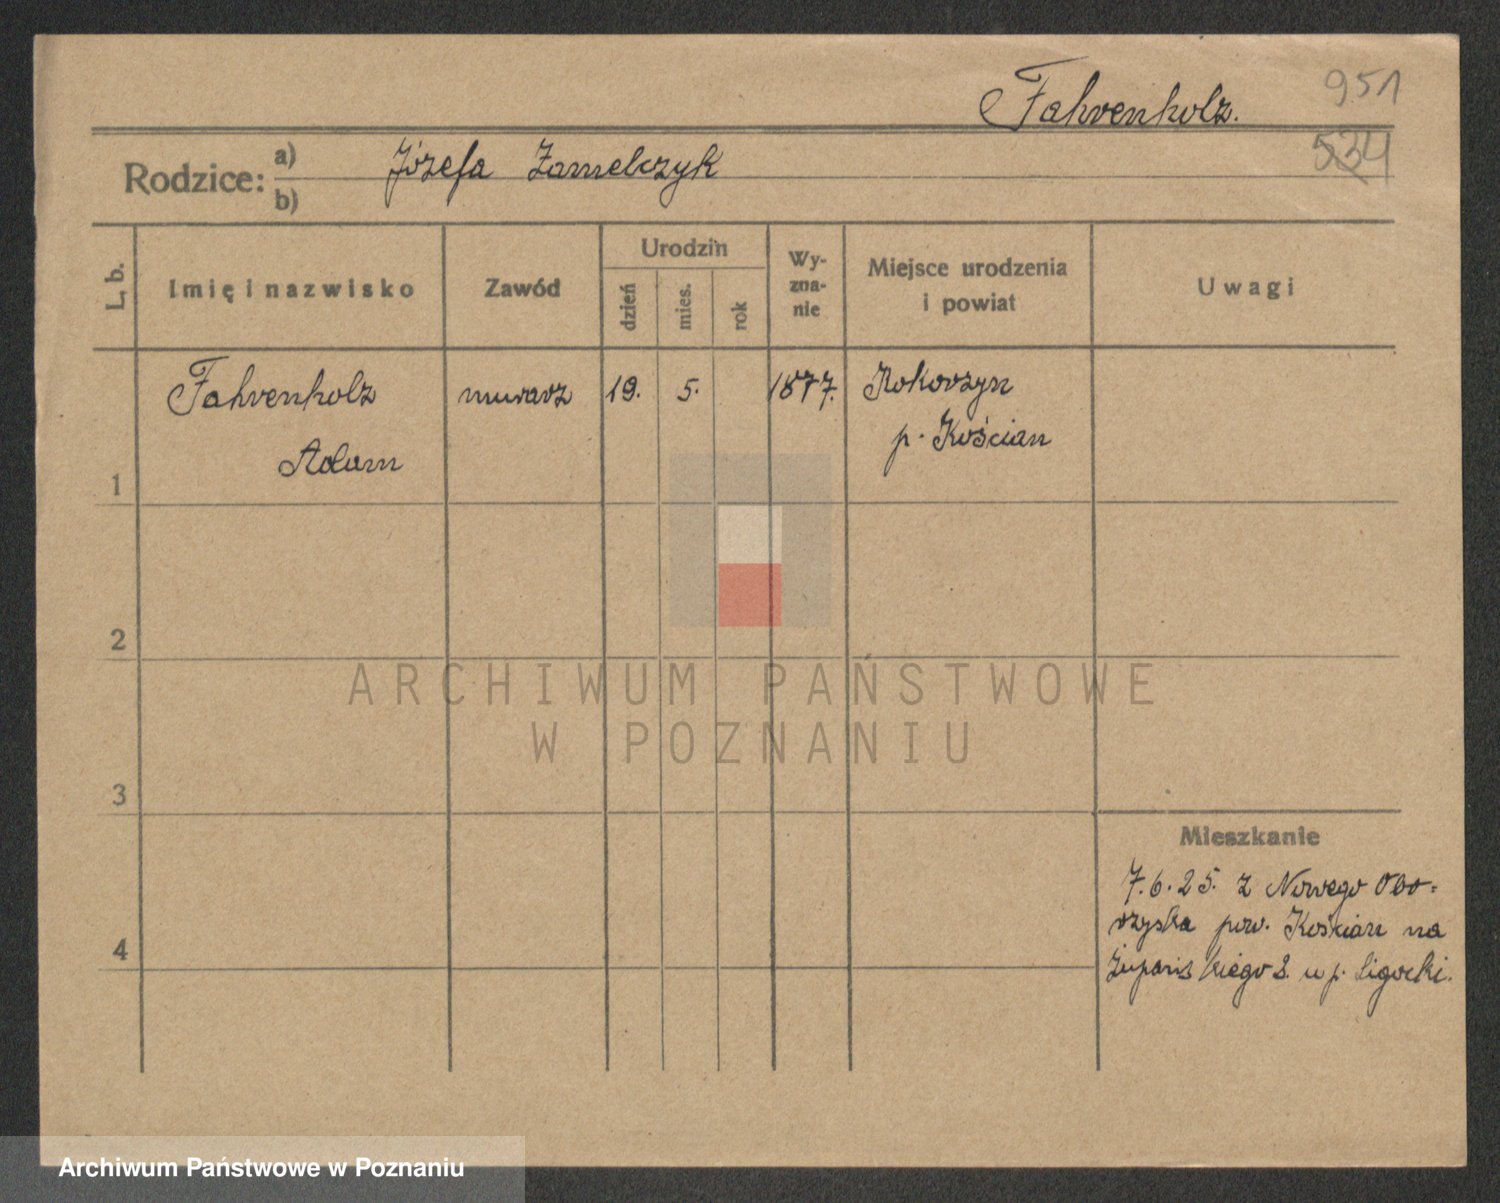 Fahrenholz.
951
534
Rodzice:
a)
b)
Józefa Zamelczyk
L. b.
Imię i nazwisko
Zawód
Urodzin
dzień
mies.
rok
Wy-
zna-
nie
Miejsce urodzenia
i powiat
Uwagi
Fahrenholz
Adam
murarz
19.
5.
1877.
Rokorzyn
p. Kościan
1
2
3
4
Mieszkanie
7.6.25. z Nowego Obo-
rzyska pow. Kościan na
Żupańskiego 8. u p. Ligocki.
ARCHIWUM PAŃSTWOWE
W POZNANIU
Archiwum Państwowe w Poznaniu